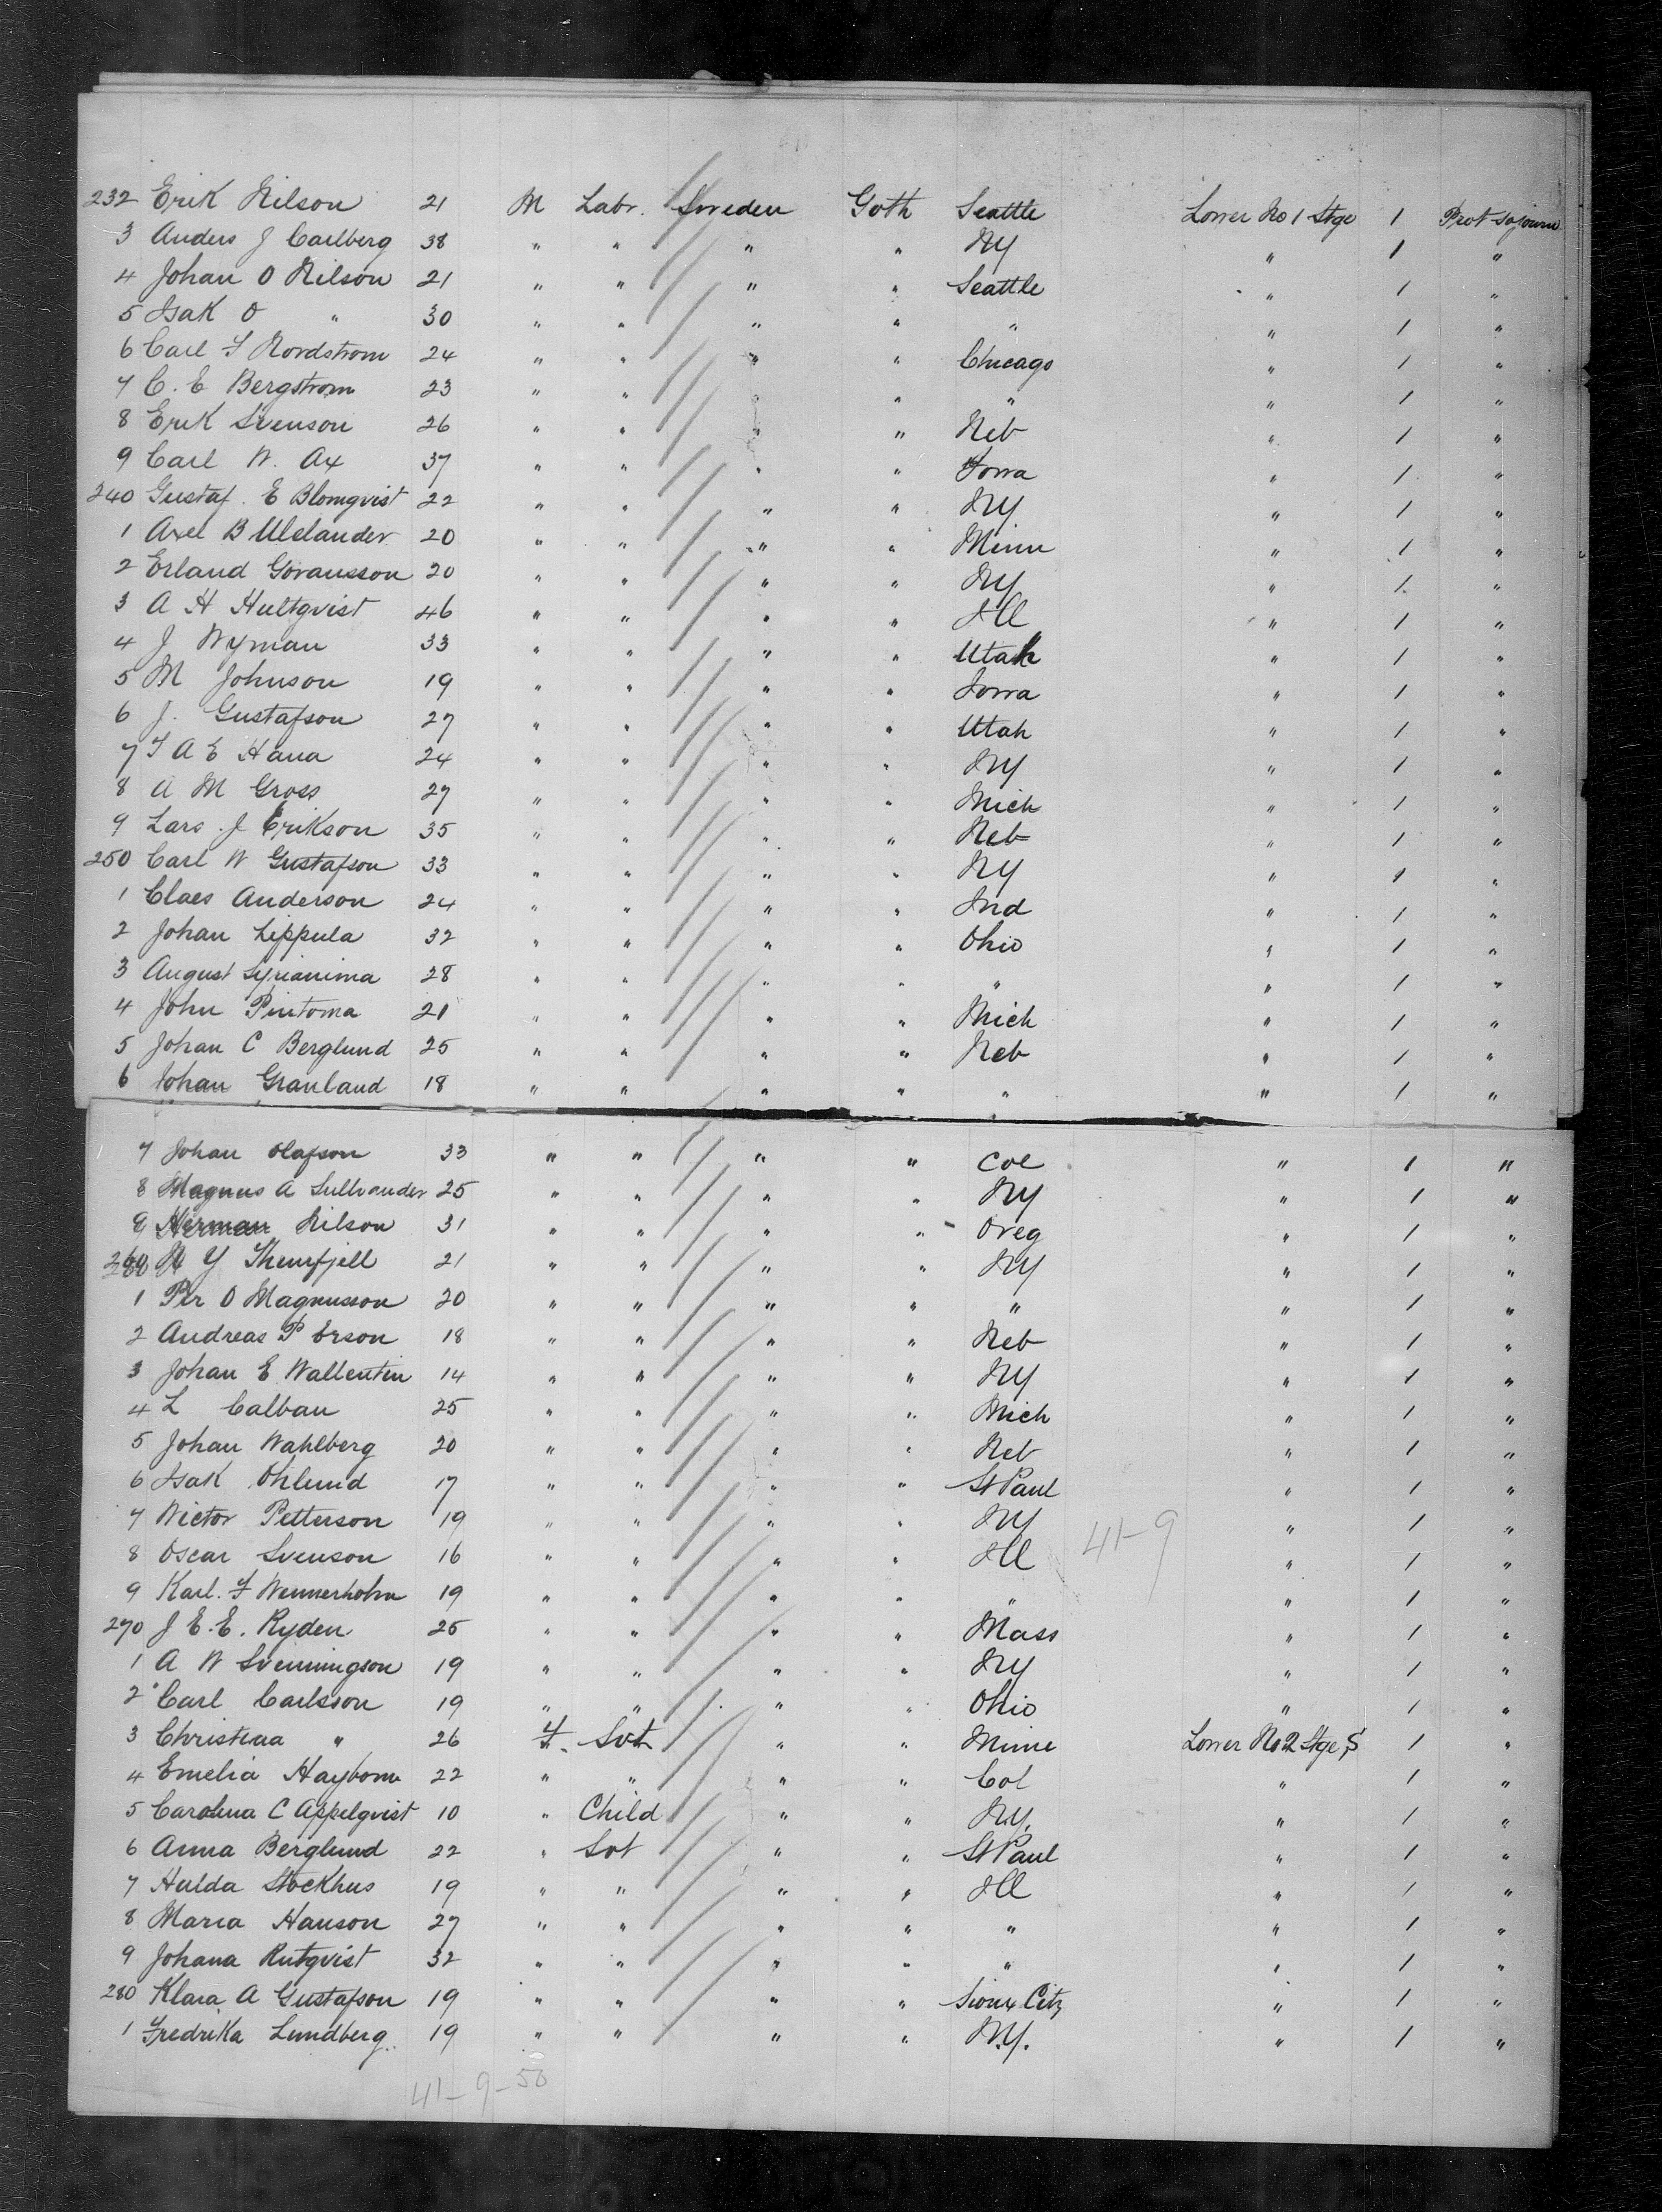 232 Erik Nilson 21 M Labr. Sweden Goth Seattle Lower No 1 Stge 1 Prot sojourn
3 Anders J Carlberg 38 " " " " NY " 1 "
4 Johan O Nilson 21 " " " " Seattle " 1 "
5 Isak O " 30 " " " " " " 1 "
6 Carl F Nordstrom 24 " " " " Chicago " 1 "
7 C. E Bergstrom 23 " " " " " " 1 "
8 Erik Svenson 26 " " " " Neb " 1 "
9 Carl W. Ax 37 " " " " Iowa " 1 "
240 Gustaf. E Blomqvist 22 " " " " NY " 1 "
1 Axel B Ulelander 20 " " " " Minn " 1 "
2 Erland Goransson 20 " " " " NY " 1 "
3 A H Hultqvist 46 " " " " Ill " 1 "
4 J Wyman 33 " " " " Utah " 1 "
5 M Johnson 19 " " " " Iowa " 1 "
6 J. Gustafson 27 " " " " Utah " 1 "
7 F A E Hana 24 " " " " NY " 1 "
8 A M Gross 27 " " " " Mich " 1 "
9 Lars. J Erikson 35 " " " " Neb " 1 "
250 Carl W Gustafson 33 " " " " NY " 1 "
1 Claes Anderson 24 " " " " Ind " 1 "
2 Johan Lippula 32 " " " " Ohio " 1 "
3 August 28 " " " " " " 1 "
4 John Pintoma 21 " " " " Mich " 1 "
5 Johan C Berglund 25 " " " " Neb " 1 "
6 Johan Granland 18 " " " " " " 1 "
7 Johan Olafson 33 " " " " Col " 1 "
8 Magnus A Sullvander 25 " " " " NY " 1 "
9 Herman Nilson 31 " " " " Oreg " 1 "
260 Y 21 " " " " NY " 1 "
1 Per O Magnusson 20 " " " " " " 1 "
2 Andreas P Erson 18 " " " " Neb " 1 "
3 Johan E Wallentin 14 " " " " NY " 1 "
4 L Calban 25 " " " " Mich " 1 "
5 Johan Wahlberg 20 " " " " Neb " 1 "
6 Isak Ohlund 17 " " " " St Paul " 1 "
7 Wictor Petterson 19 " " " " NY " 1 "
41-9
8 Oscar Svenson 16 " " " " Ill " 1 "
9 Karl. F Wennerholm 19 " " " " " " 1 "
270 J E. E. Ryden 25 " " " " Mass " 1 "
1 A W Svenningson 19 " " " " NY " 1 "
2 Carl Carlsson 19 " " " " Ohio " 1 "
3 Christina " 26 F. Svt " " Minn Lower No 2 Stge S 1 "
4 Emelia Haybom 22 " " " " Col " 1 "
5 Carolina C Appelqvist 10 " Child " " N.Y. " 1 "
6 Anna Berglund 22 " Svt " " St Paul " 1 "
7 Hulda Stockhus 19 " " " " Ill " 1 "
8 Maria Hanson 27 " " " " " " 1 "
9 Johana Rutqvist 32 " " " " " " 1 "
280 Klara A Gustafson 19 " " " " Sioux City " 1 "
1 Fredrika Lundberg 19 " " " " N.Y. " 1 "
41-9-50